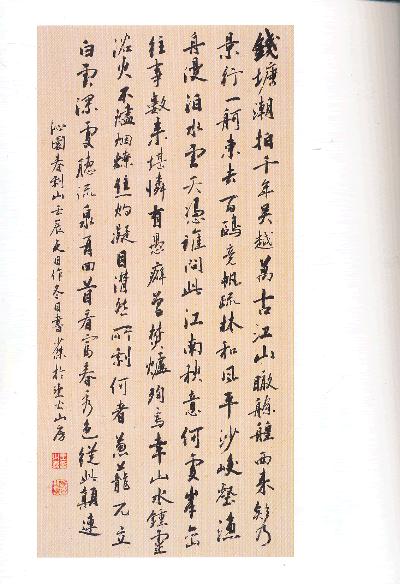 錢塘潮拍千年吳越萬古江山瞰舳艫西來欸乃
景行一舸東去百鷗竞帆疏林和風平沙峻壑漁
舟漫泊水雲天憑誰問此江南秋意何處峯巒
往事數来堪憐有愚癖焚爐殉焉幸山水鍾靈
浴火不燼烟煉焦灼凝目潸然所剩何者蒼龍兀立
白雲深處聽流泉再回首看富春秀色從此顛連
沁園春剩山壬辰夏日作冬日書於山房